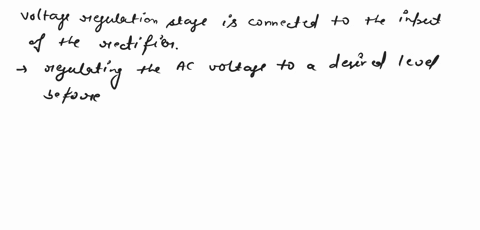 voltage regulation stage is connected to the input
of the rectifier.
→ regulating the AC voltage to a desired level
before